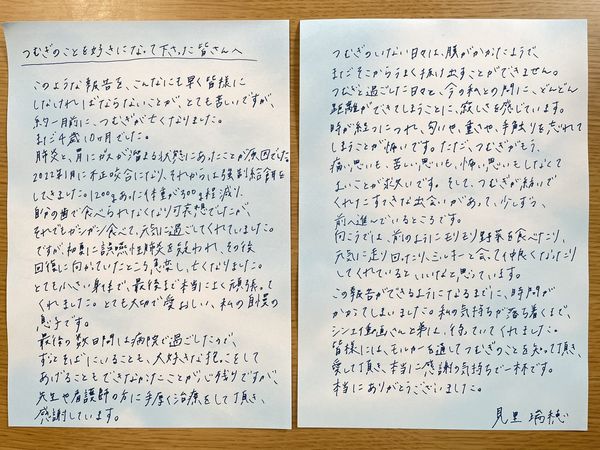 つむぎのことを好きになって下さった皆さんへ
このような報告を、こんなにも早く皆様に
しなければならないことが、とても苦しいですが、
約一月前に、つむぎが亡くなりました。
まだ4歳10ヶ月でした。
肺炎と、胃にガスが溜まる状態にあったことが原因でした。
2022年1月に不正咬合になり、それからは強制給餌を
してきました。1200gあった体重が300g程減り、
自分の歯で食べられなくなり可哀想でしたが、
それでもガシガシ食べて、元気に過ごしてくれていました。
ですが、初夏に誤嚥性肺炎を疑われ、その後
回復に向かっていたところ、急変し、亡くなりました。
とても小さい身体で、最後まで本当によく頑張って
くれました。とても大切で愛おしい、私の自慢の
息子です。
最後の数日間は病院で過ごしたので、
ずっとそばにいることも、大好きな抱っこをして
あげることもできなかったことが、心残りですが、
先生や看護師の方に手厚く治療をして頂き、
感謝しています。
つむぎのいない日々は、膜がかかったようで、
まだそこからうまく抜け出すことができません。
つむぎと過ごした日々と、今の私との間に、どんどん
距離ができてしまうことに、寂しさを感じています。
時が経つにつれ、匂いや、重さや、手触りを忘れて
しまうことが怖いです。ただ、つむぎがもう、
痛い思いも、苦しい思いも、怖い思いもしなくて
よいことが救いです。そして、つむぎが紡いで
くれたすてきな出会いがあって、少しずつ、
前へ進んでいるところです。
向こうでは、前のようにモリモリ野菜を食べたり、
元気に走り回ったり、ミルキーと会って仲良くなったり
してくれているといいなと思っています。
この報告ができるようになるまでに、時間が
かかってしまいました。私の気持ちが落ち着くまで、
シンエイ動画さんと弊社、待っていてくれました。
皆様には、モルカーを通してつむぎのことを知って頂き、
愛して頂き、本当に感謝の気持ちで一杯です。
本当にありがとうございました。
見里 瑞穂